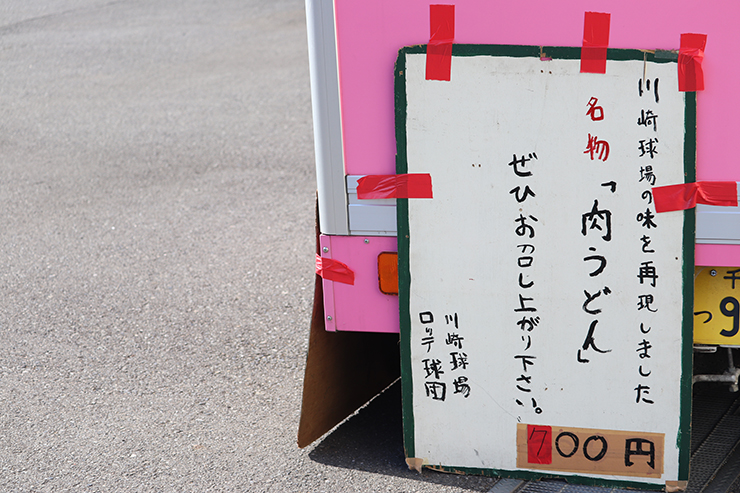 川崎球場の味を再現しました
名物
「肉うどん」
ぜひお召し上がり下さい。
川崎球場
ロッテ球団
700円
千
つ 9